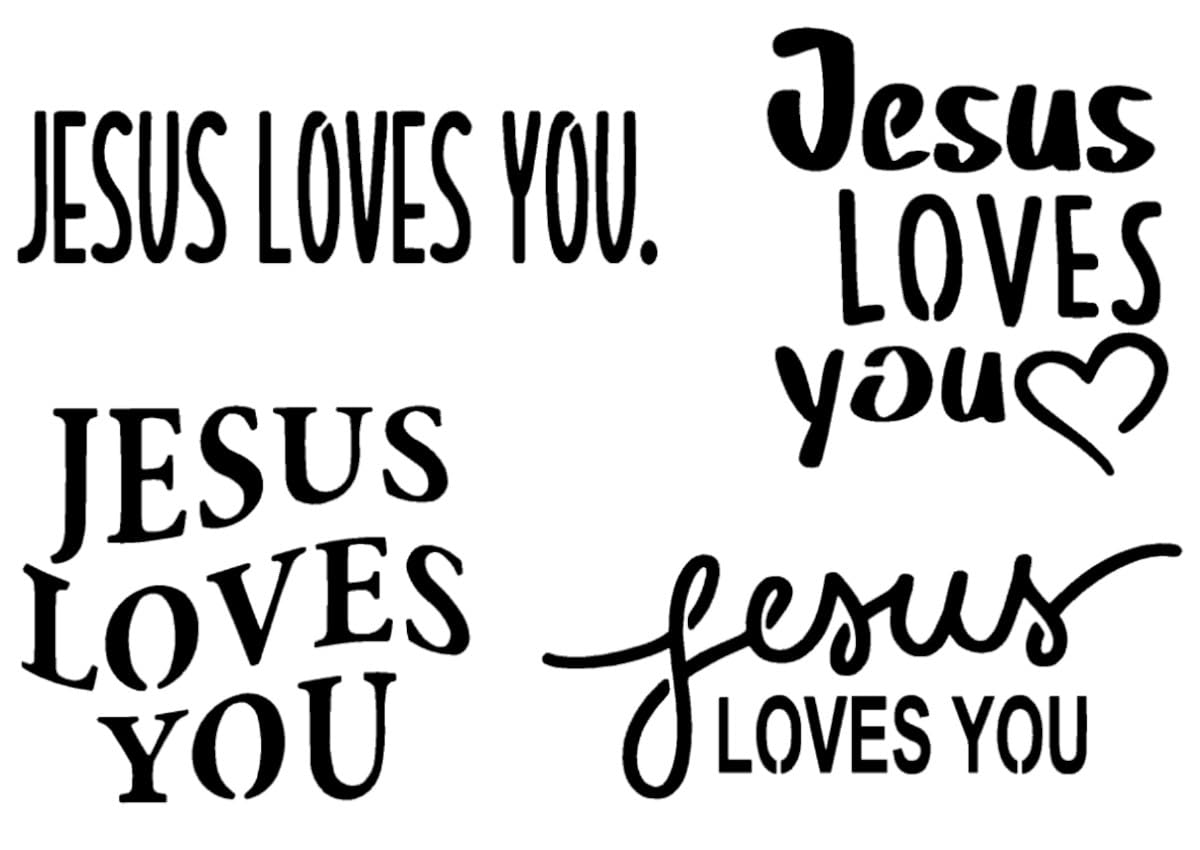 JESUS LOVES YOU.
Jesus
LOVES
you
JESUS
LOVES
YOU
Jesus
LOVES YOU